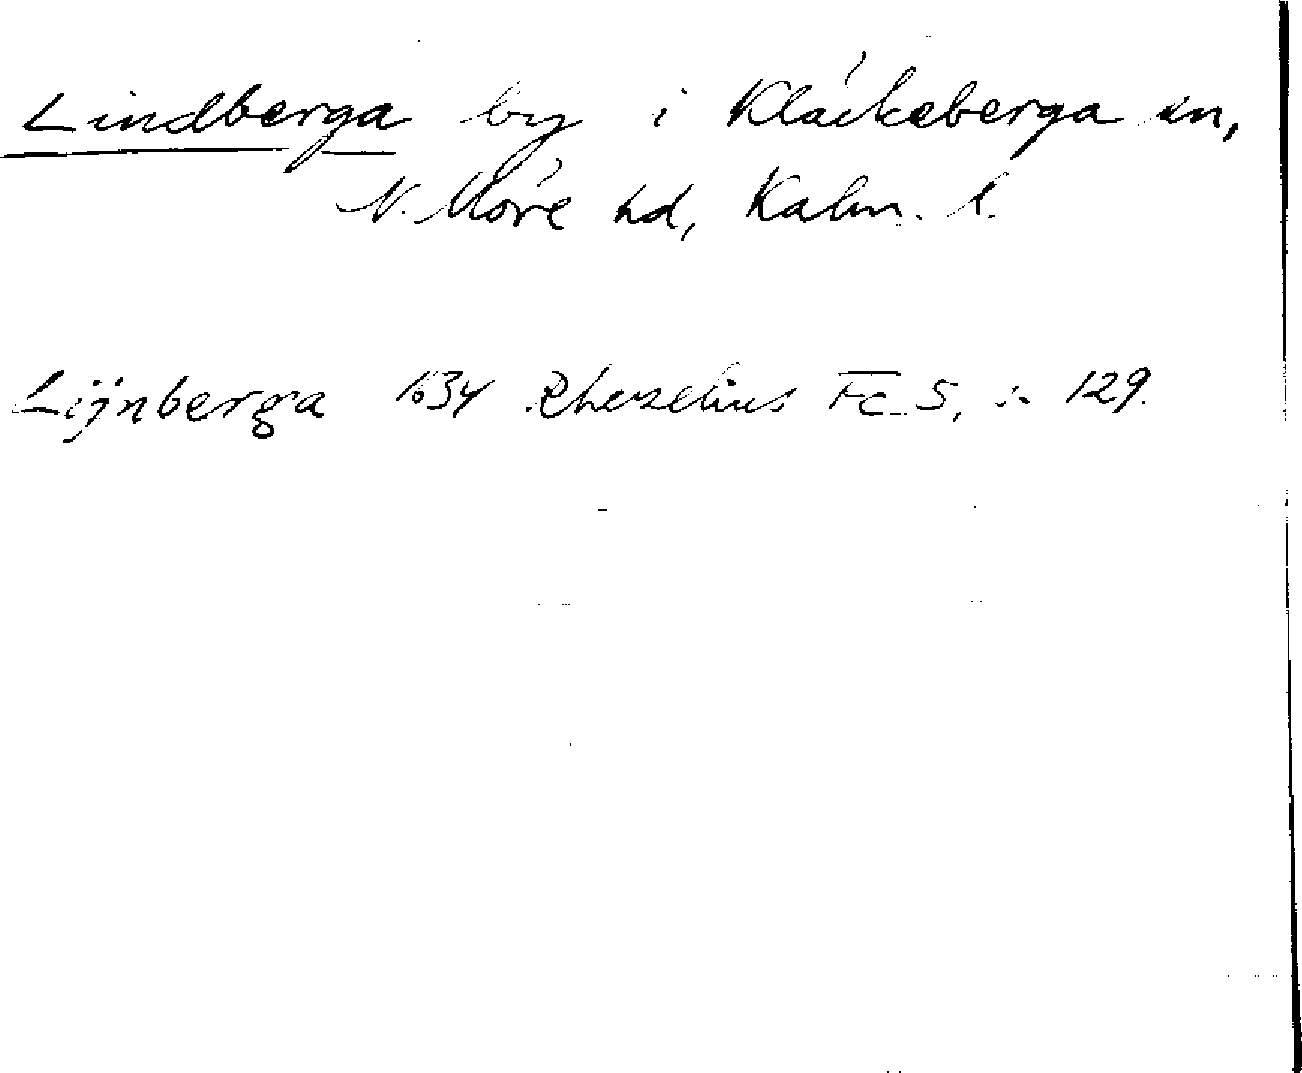 Lindberga by i Kläckeberga sn,
N. Möre hd, Kalm. l.
Lijnberga 1634 Rhezelius Fc 5, s. 129.